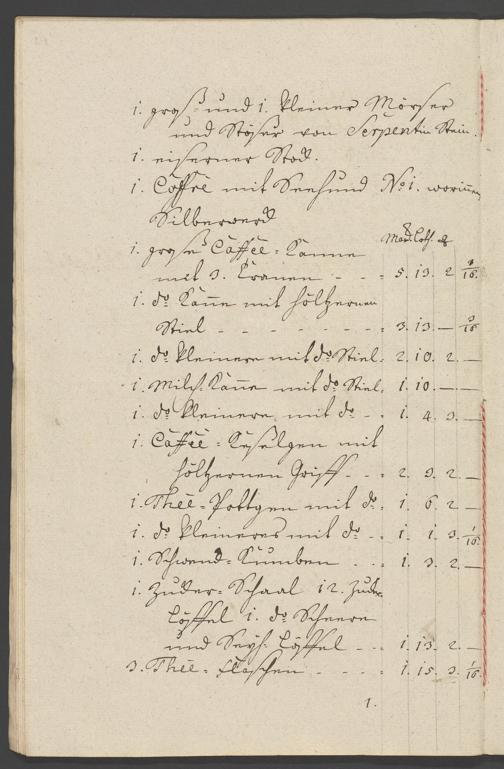 1. groß- und 1. kleiner Mörser
und Stößer von Serpentin Stein.
1. eiserner Stock.
1. Coffre mit Seehund No: 1. worinnen
Silberwerck
Marc. Loth. q
1. große Caffée-Kanne
mit 3. Kranen - - = 5. 13. 2
1. do Kanne mit höltzernen
Stiel - - - - - - - = 3. 13. — 3/16.
1. do kleinere mit do Stiel. 2. 10. 2. —
1. Milch Kanne mit do Stiel. 1. 10. — —
1. do kleinere mit do - . 1. 4. 3. —
1. Caffée-Keßelgen mit
höltzernen Griff - . = 2. 3. 2. —
1. Thée-Pottgen mit do. 1. 6. 2 —
1. do kleineres mit do - . 1. 1. 3. 1/16.
1. Schwenck-Kumben . . = 1. 3. 2. —
1. Zucker-Schaal 12. Zucker
Löffel 1. do Scheere
und Seyh-Löffel - - = 1. 13. 2. —
3. Thée-Flaschen - - - - = 1. 15. 3. 1/16.
1.